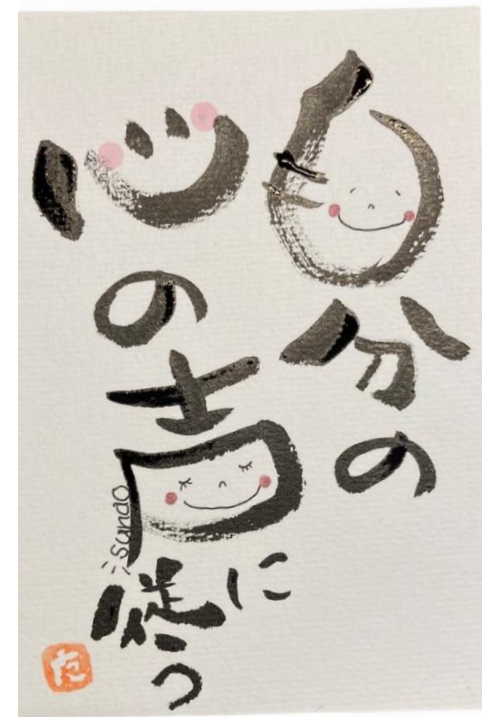 自分の
心の声に
従う
sunao
た